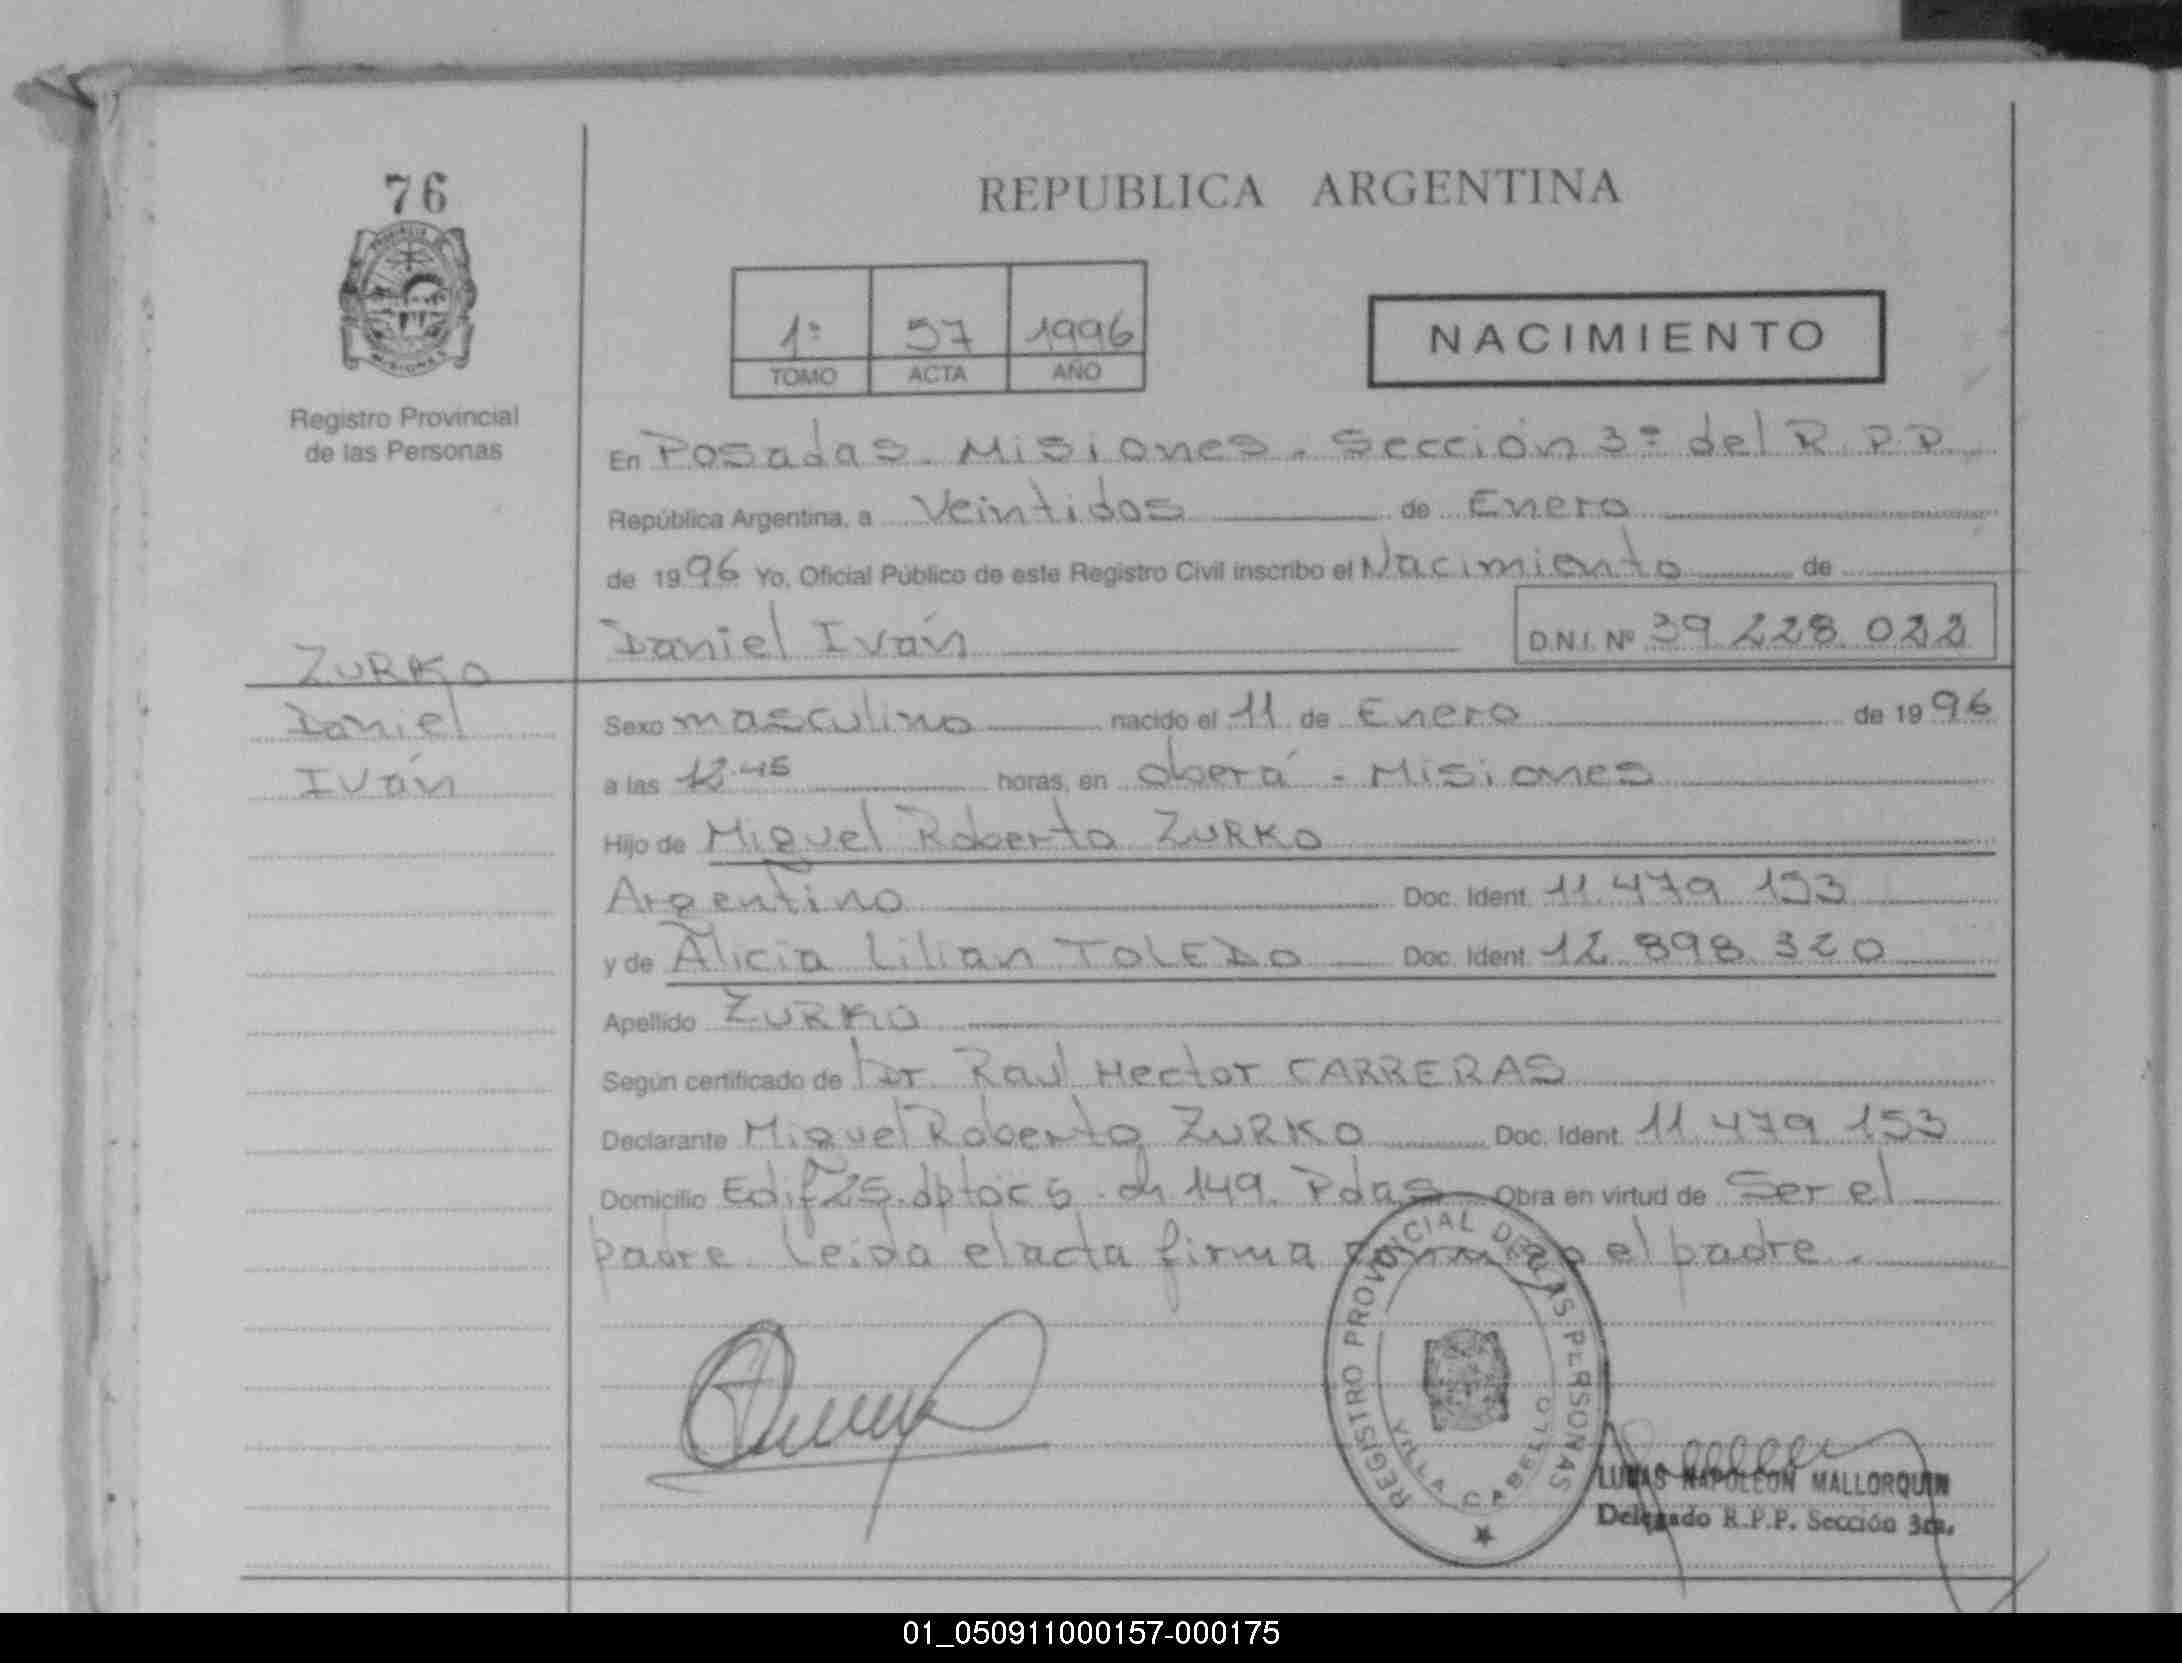 76
REPUBLICA ARGENTINA
PROVINCIA DE
MISIONES
1º 57 1996
TOMO ACTA AÑO
NACIMIENTO
Registro Provincial
de las Personas
En Posadas - Misiones - Sección 3º del R.P.P.
República Argentina, a Veintidos de Enero
de 1996 Yo, Oficial Público de este Registro Civil inscribo el Nacimiento de
Daniel Iván D.N.I. Nº 39.228.022
ZURKO
Daniel
Iván
Sexo masculino nacido el 11 de Enero de 1996
a las 12.45 horas, en Oberá - Misiones
Hijo de Miguel Roberto ZURKO
Argentino Doc. Ident. 11.479.153
y de Alicia Lilian TOLEDO Doc. Ident. 12.898.320
Apellido ZURKO
Según certificado de Dr. Raul Hector CARRERAS
Declarante Miguel Roberto ZURKO Doc. Ident. 11.479.153
Domicilio Edif 25. dpto c 5. ch 149. Pdas Obra en virtud de Ser el
padre. Leida el acta firma conmigo el padre.
REGISTRO PROVINCIAL DE LAS PERSONAS
VILLA CABELLO
LUCAS NAPOLEON MALLORQUIN
Delegado R.P.P. Sección 3ra.
01_050911000157-000175